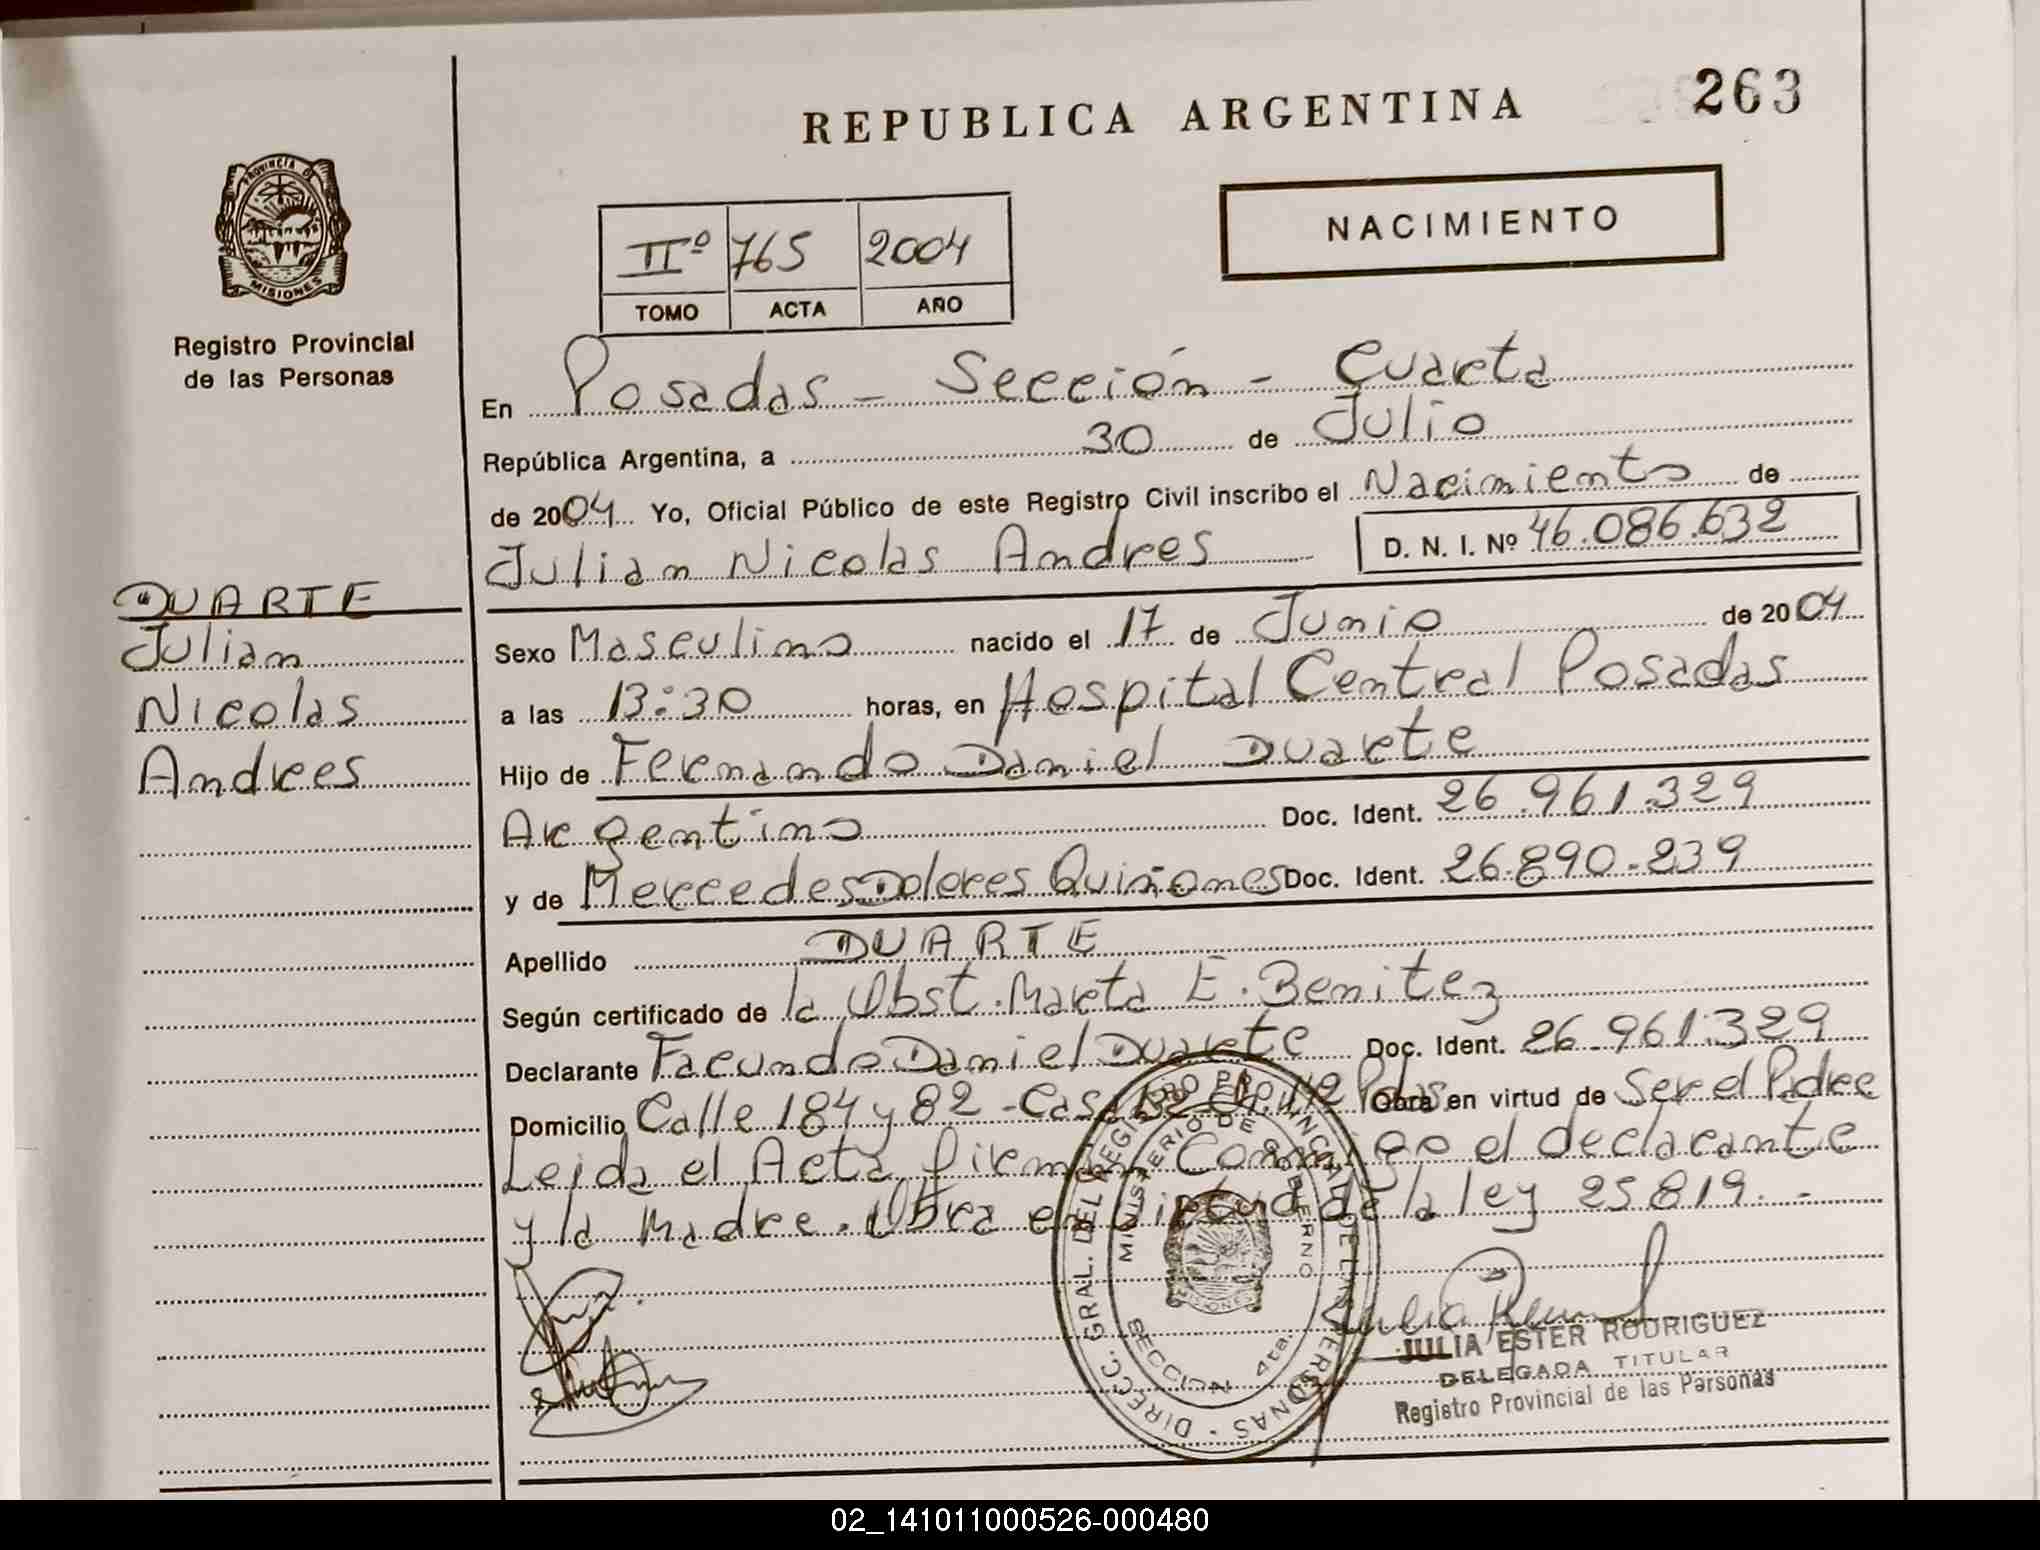 263
REPUBLICA ARGENTINA
NACIMIENTO
PROVINCIA DE
MISIONES
Registro Provincial
de las Personas
IIº 765 2004
TOMO ACTA AÑO
En Posadas - Sección - Cuarta
República Argentina, a 30 de Julio
de 2004 Yo, Oficial Público de este Registro Civil inscribo el Nacimiento de
Julian Nicolas Andres D. N. I. Nº 46.086.632
DUARTE
Julian
Nicolas
Andres
Sexo Masculino nacido el 17 de Junio de 2004
a las 13:30 horas, en Hospital Central Posadas
Hijo de Fernando Daniel Duarte
Argentino Doc. Ident. 26.961.329
y de Mercedes Dolores Quiñones Doc. Ident. 26.890.239
Apellido DUARTE
Según certificado de la Obst. Marta E. Benitez
Declarante Facundo Daniel Duarte Doc. Ident. 26.961.329
Domicilio Calle 184 y 82 - Casa Pdas Obra en virtud de Ser el Padre
Leida el Acta, firman Conmigo el declarante
y la Madre. Obra en Virtud de la ley 25.819. -
DIRECC. GRAL. DEL REGISTRO PROVINCIAL DE LAS PERSONAS
MINISTERIO DE GOBIERNO
MISIONES
SECCION 4ta.
JULIA ESTER RODRIGUEZ
DELEGADA TITULAR
Registro Provincial de las Personas
02_141011000526-000480